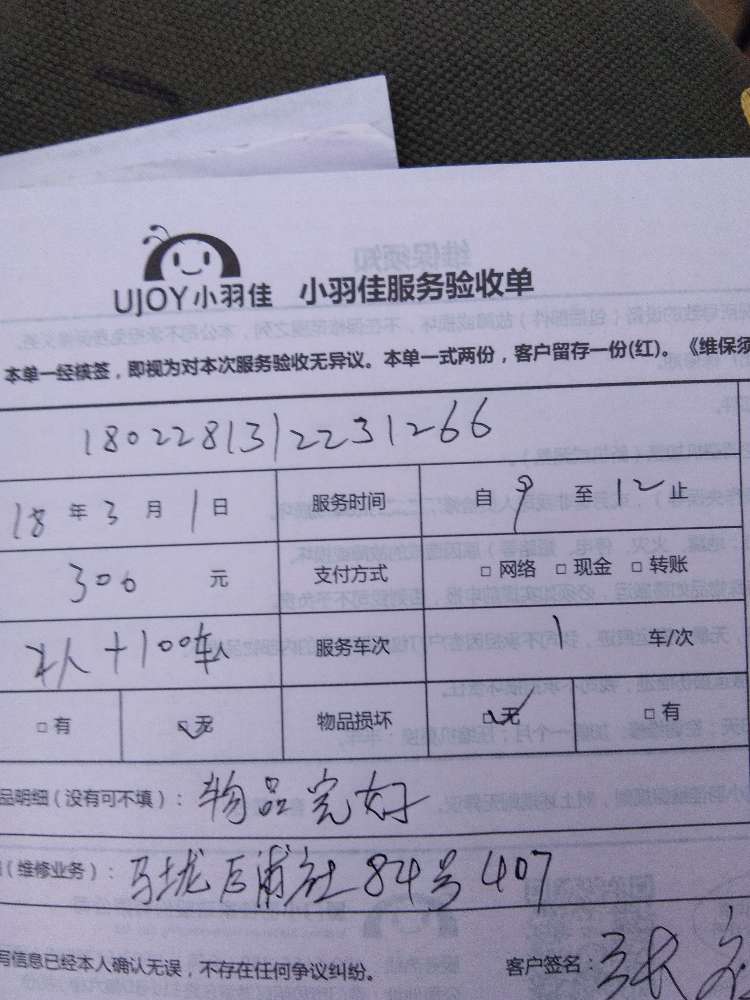 UJOY小羽佳 小羽佳服务验收单
本单一经核签，即视为对本次服务验收无异议。本单一式两份，客户留存一份(红)。《维保须
1802281312231266
18年3月1日 服务时间 自9至12止
300元 支付方式 □网络 □现金 □转账
人+100车 服务车次 1车/次
□有 □无 物品损坏 □无 □有
品明细（没有可不填）： 物品完好
（维修业务）： 马垅后浦社84号407
写信息已经本人确认无误，不存在任何争议纠纷。 客户签名： 张